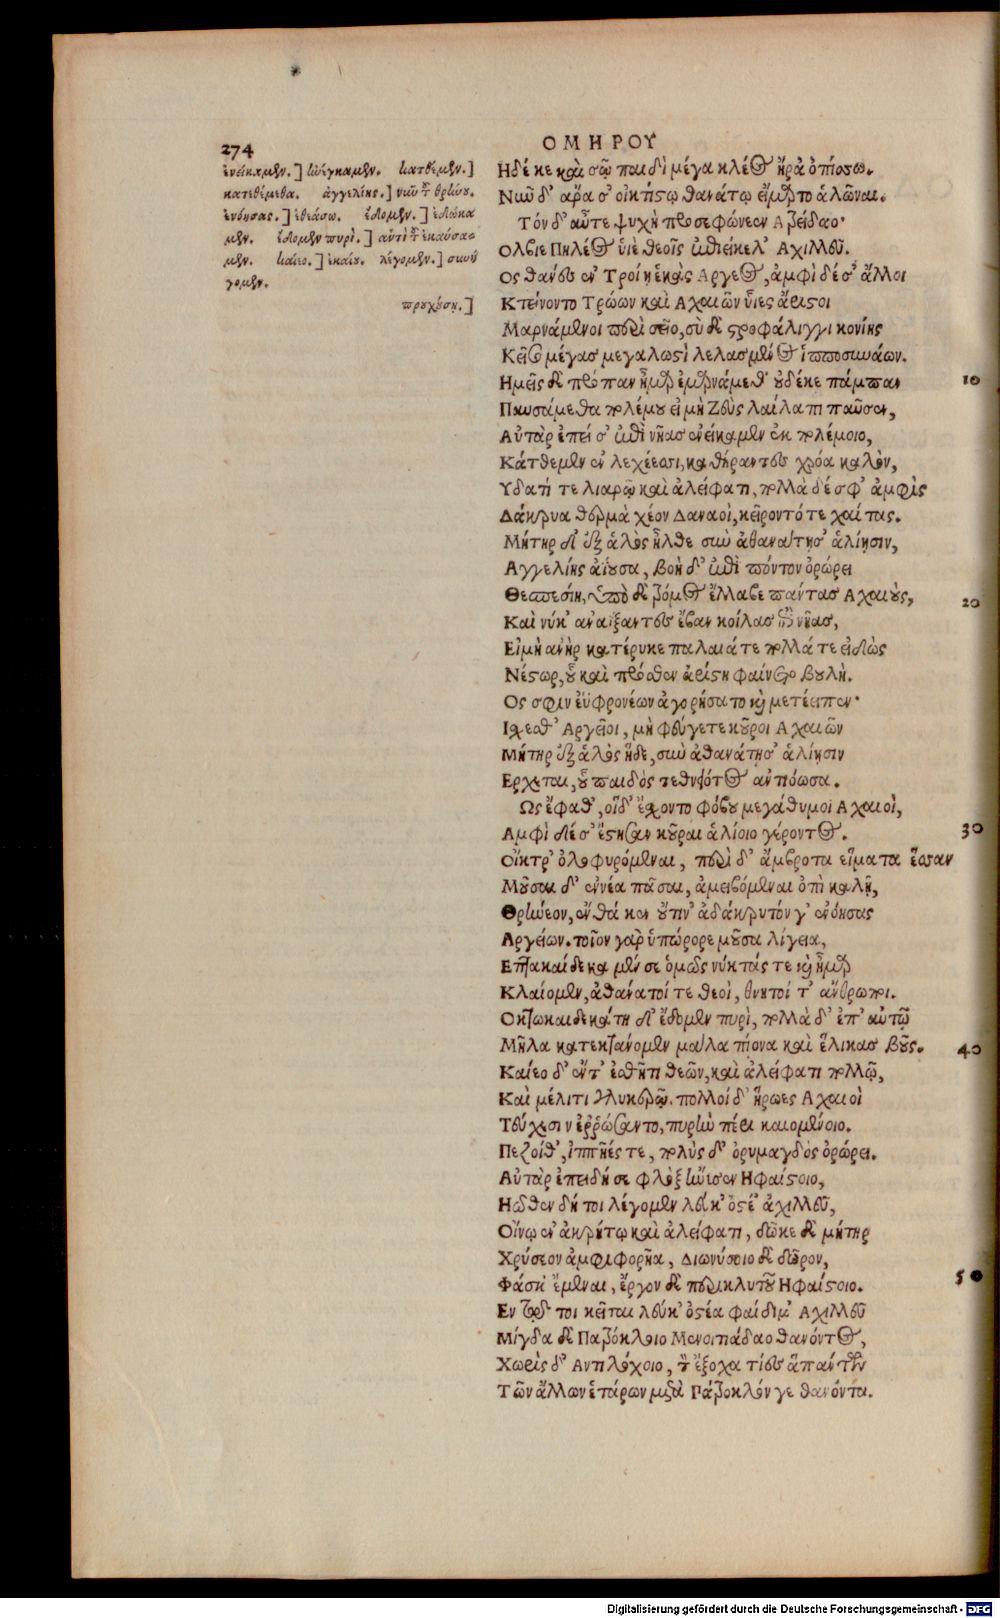 274
ΟΜΗΡΟΥ
ἐνείκαμεν.] ἠνέγκαμεν. κατθέμεν.]
κατεθέμεθα. ἀγγελίης.]
ἐνόησας.] ἐθεάσω. ἔδομεν.] ἐδώκα
μεν. ἔδομεν πυρὶ.] ἀντὶ τοῦ ἐκαύσα-
μεν. καίεο.] ἐκαίου. λέγομεν.] συνή
γομεν.
Ηδέ κε καὶ σῷ παιδὶ μέγα κλέος ἤρα ὀπίσσω.
Νιῦ δ' ἄρα σ' οἰκτίςῳ θανάτῳ εἵμαρτο ἁλῶναι.
Τόν δ' αὖτε ψυχὴ προσεφώνεεν Ατρείδαο·
Ολβιε Πηλέος ὑιὲ θεοῖς ἐπιείκελ' Αχιλλεῦ.
Ος θανὲς ἐν Τροίῃ ἑκὰς Αργεος, ἀμφὶ δέ σ' ἄλλοι
Κτείνοντο Τρώων καὶ Αχαιῶν ὗιες ἄριςοι
Μαρνάμενοι περὶ σεῖο, σὺ δὲ ςροφάλιγγι κονίης
Κεῖσο μέγας μεγαλωςὶ λελασμένος ἱπποσυνάων.
Ημεῖς δὲ πρόπαν ἦμαρ ἐμαρνάμεθ' οὐδέ κε πάμπαν
10
Παυσάμεθα πολέμου εἰ μὴ Ζεὺς λαίλαπι παῦσεν,
Αὐτὰρ ἐπεί σ' ἐπὶ νῆας ἐνείκαμεν ἐκ πολέμοιο,
Κάτθεμεν ἐν λεχέεσσι, καθήραντες χρόα καλὸν,
Υδατί τε λιαρῷ καὶ ἀλείφατι, πολλὰ δέ σφ' ἀμφὶς
Δάκρυα θερμὰ χέον Δαναοὶ, κείροντό τε χαίτας.
Μήτηρ δ' ἐξ ἁλὸς ἦλθε σὺν ἀθανάτῃς ἁλίῃσιν,
Αγγελίης ἀΐουσα, βοὴ δ' ἐπὶ πόντον ὀρώρει
Θεσπεσίη, ὑπὸ δὲ τρόμος ἔλλαβε πάντας Αχαιούς,
20
Καὶ νύκ' ἀναΐξαντες ἔβαν κοίλας ἐπὶ νῆας,
Εἰ μὴ ἀνὴρ κατέρυκε παλαιά τε πολλά τε εἰδὼς
Νέςωρ, οὗ καὶ πρόσθεν ἀρίςη φαίνετο βουλὴ.
Ος σφιν ἐϋφρονέων ἀγορήσατο καὶ μετέειπεν·
Ισχεσθ' Αργεῖοι, μὴ φεύγετε κοῦροι Αχαιῶν
Μήτηρ ἐξ ἁλὸς ἥδε, σὺν ἀθανάτῃς ἁλίῃσιν
Ερχεται, οὗ παιδὸς τεθνηότος ἀντιόωσα.
Ως ἔφαθ', οἵδ' ἔσχοντο φόβου μεγάθυμοι Αχαιοὶ,
Αμφὶ δέ σ' ἔςησαν κοῦραι ἁλίοιο γέροντος.
30
Οἴκτρ' ὀλοφυρόμεναι, περὶ δ' ἄμβροτα εἵματα ἕσσαν
Μοῦσαι δ' ἐννέα πᾶσαι, ἀμειβόμεναι ὀπὶ καλῇ,
Θρήνεον, ἔνθά κεν οὔτιν' ἀδάκρυτόν γ' ἐνόησας
Αργείων. τοῖον γὰρ ὑπώρορε μοῦσα λίγεια,
Επτακαίδεκα μέν σε ὁμῶς νύκτάς τε καὶ ἦμαρ
Κλαίομεν, ἀθάνατοί τε θεοὶ, θνητοί τ' ἄνθρωποι.
Οκτωκαιδεκάτῃ δ' ἔδομεν πυρὶ, πολλὰ δ' ἐπ' αὐτῷ
Μῆλα κατεκτάνομεν μάλα πίονα καὶ ἕλικας βοῦς.
40
Καίεο δ' ἔντ' ἐσθῆτι θεῶν, καὶ ἀλείφατι πολλῷ,
Καὶ μέλιτι γλυκερῷ. πολλοὶ δ' ἥρωες Αχαιοὶ
Τεύχεσιν ἐῤῥώσαντο, πυρὴν πέρι καιομένοιο.
Πεζοίθ', ἱππῆές τε, πολὺς δ' ὀρυμαγδὸς ὀρώρει.
Αὐτὰρ ἐπειδή σε φλὸξ ἤνισεν Ηφαίςοιο,
Ηῶθεν δή τοι λέγομεν λεύκ' ὀςέ' ἀχιλλεῦ,
Οἴνῳ ἐν ἀκρήτῳ καὶ ἀλείφατι, δῶκε δὲ μήτηρ
Χρύσεον ἀμφιφορῆα, Διωνύσοιο δὲ δῶρον,
Φάσκ' ἔμεναι, ἔργον δὲ περικλυτοῦ Ηφαίςοιο.
50
Εν τῷδέ τοι κεῖται λεύκ' ὀςέα φαίδιμ' Αχιλλεῦ
Μίγδα δὲ Πατρόκλοιο Μενοιτιάδαο θανόντος,
Χωρὶς δ' Αντιλόχοιο, τὸν ἔξοχα τίες ἁπάντων
Τῶν ἄλλων ἑτάρων μετὰ Πάτροκλόν γε θανόντα.
Digitalisierung gefördert durch die Deutsche Forschungsgemeinschaft - DFG